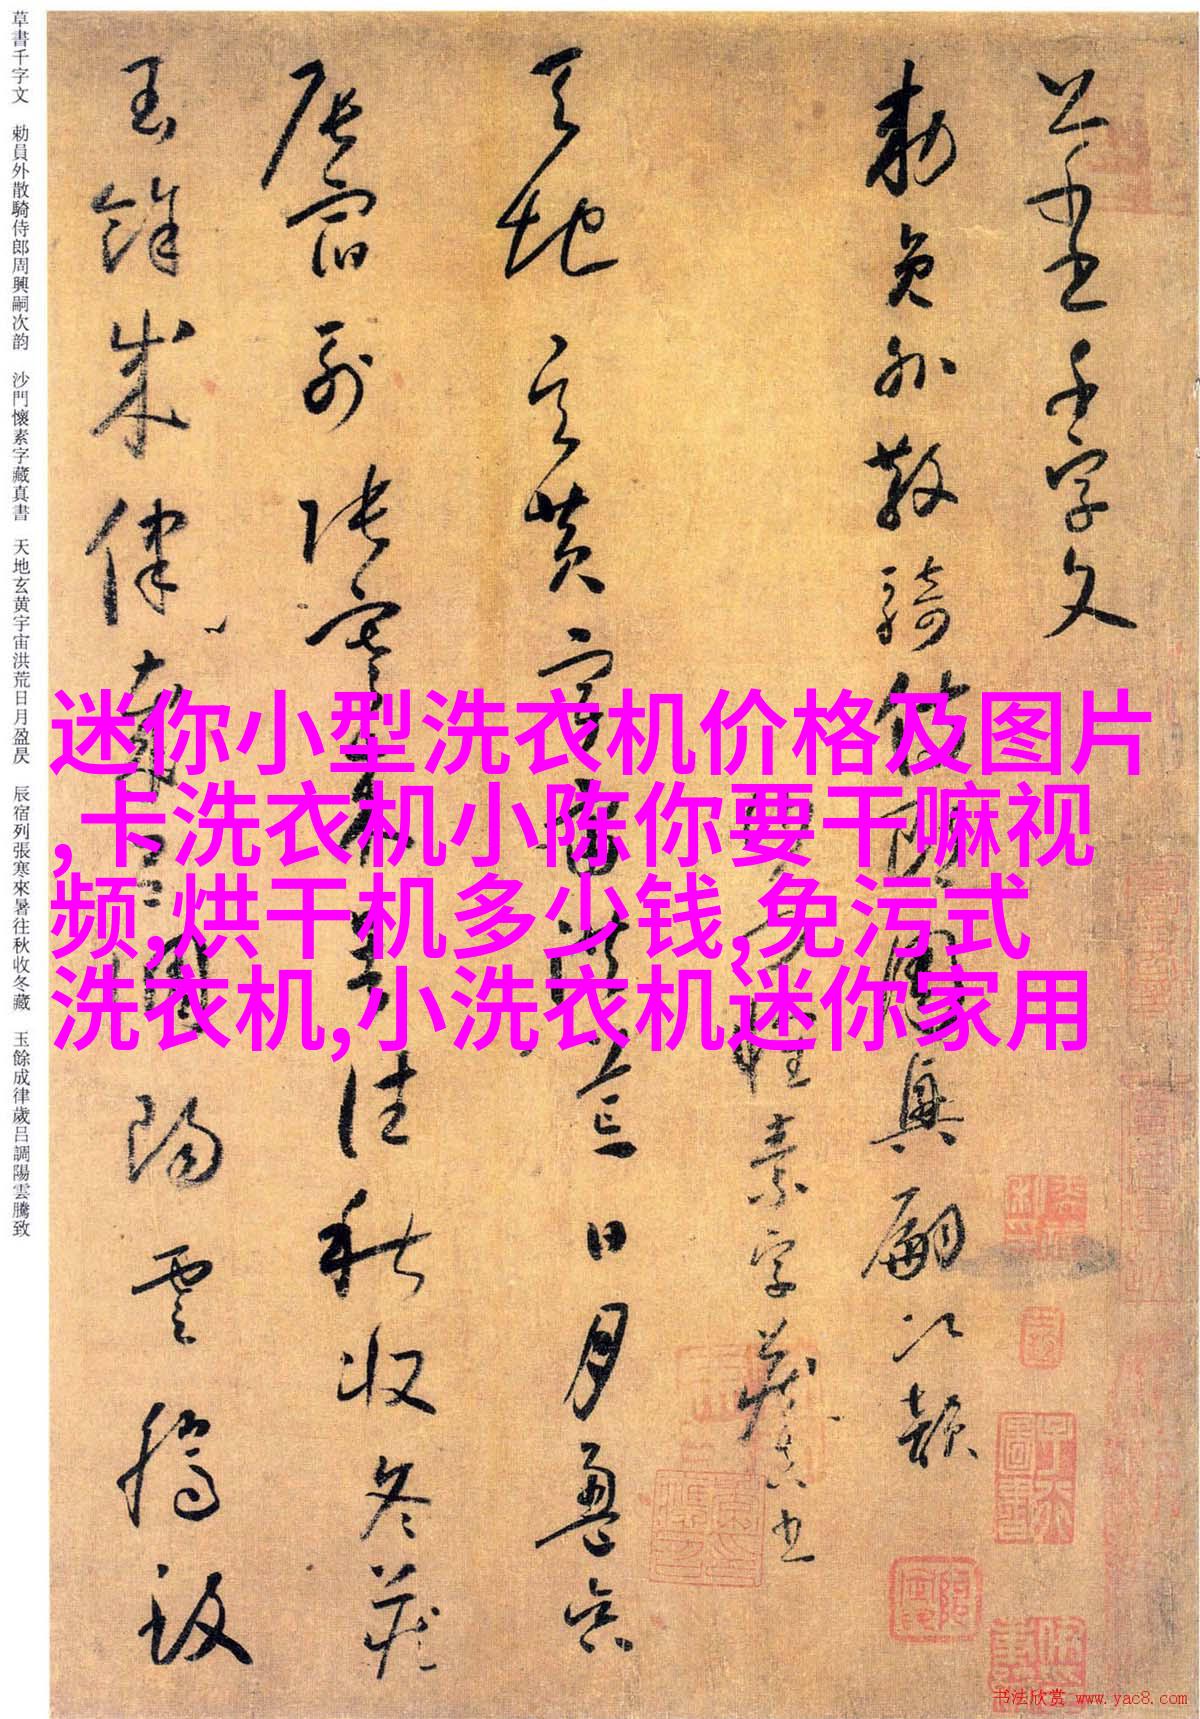 草書千字文　勅員外散騎侍郎周興嗣次韵　沙門懷素字藏真書　天地玄黄宇宙洪荒日月盈昃　辰宿列張寒來暑往秋收冬藏　玉餘成律歲呂調陽雲騰致
草書千字文
勅員外散騎侍郎周興嗣次韵
沙門懷素字藏真書
天地玄黄宇宙洪荒日月盈昃
辰宿列張寒來暑往秋收冬藏
玉餘成律歲呂調陽雲騰致
迷你小型洗衣机价格及图片
,卡洗衣机小陈你要干嘛视
频,烘干机多少钱,免污式
洗衣机,小洗衣机迷你家用
书法欣赏 www.yac8.com